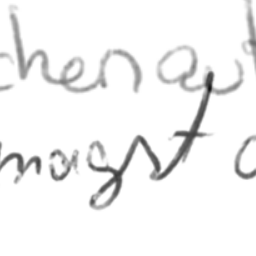 chen au
magst